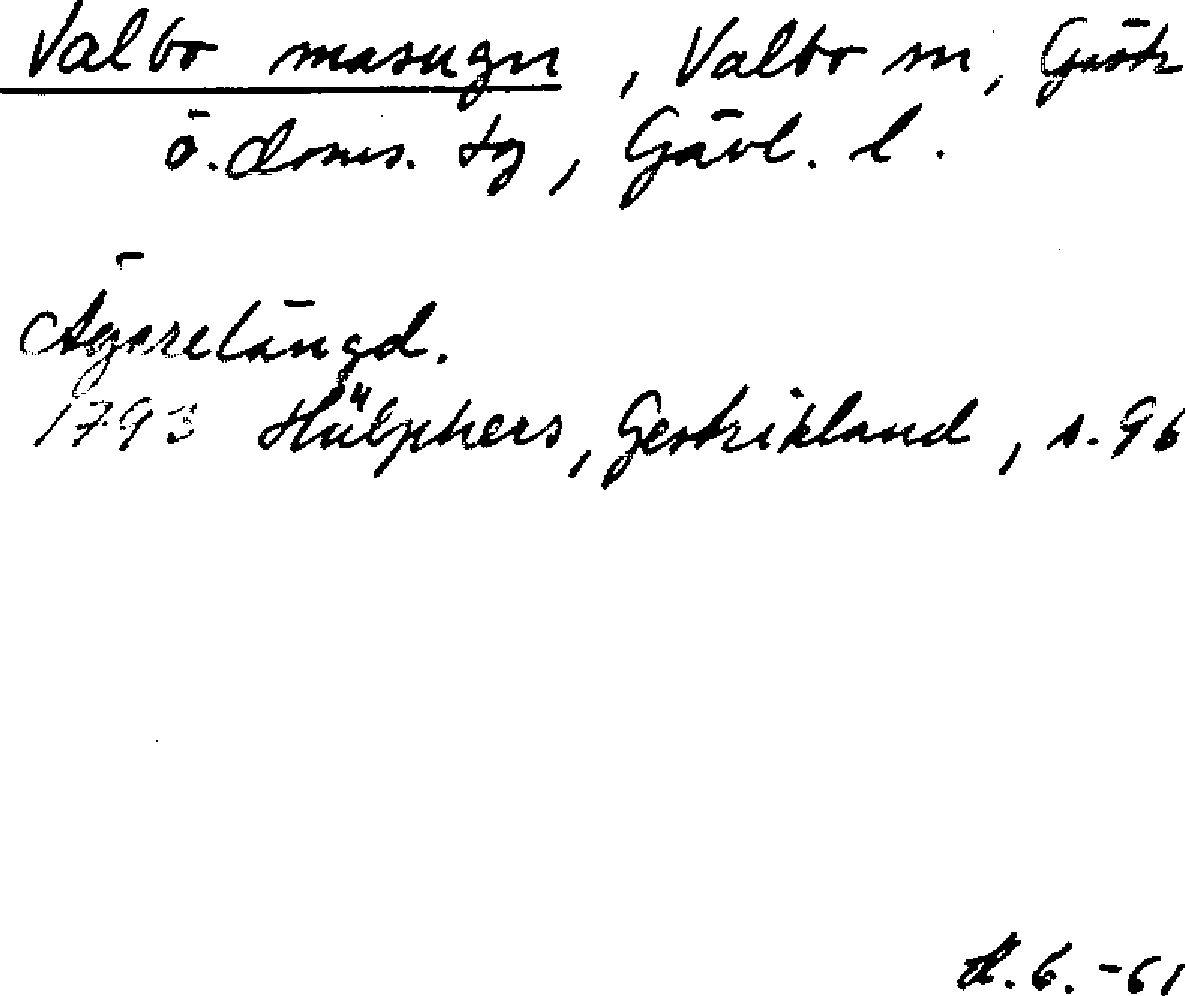 Valbo masugn, Valbo sn, Gästr
ö. doms. tg, Gävl. l.
Ägarelängd.
1793 Hülphers, Gestrikland, s. 96
H.G. -61